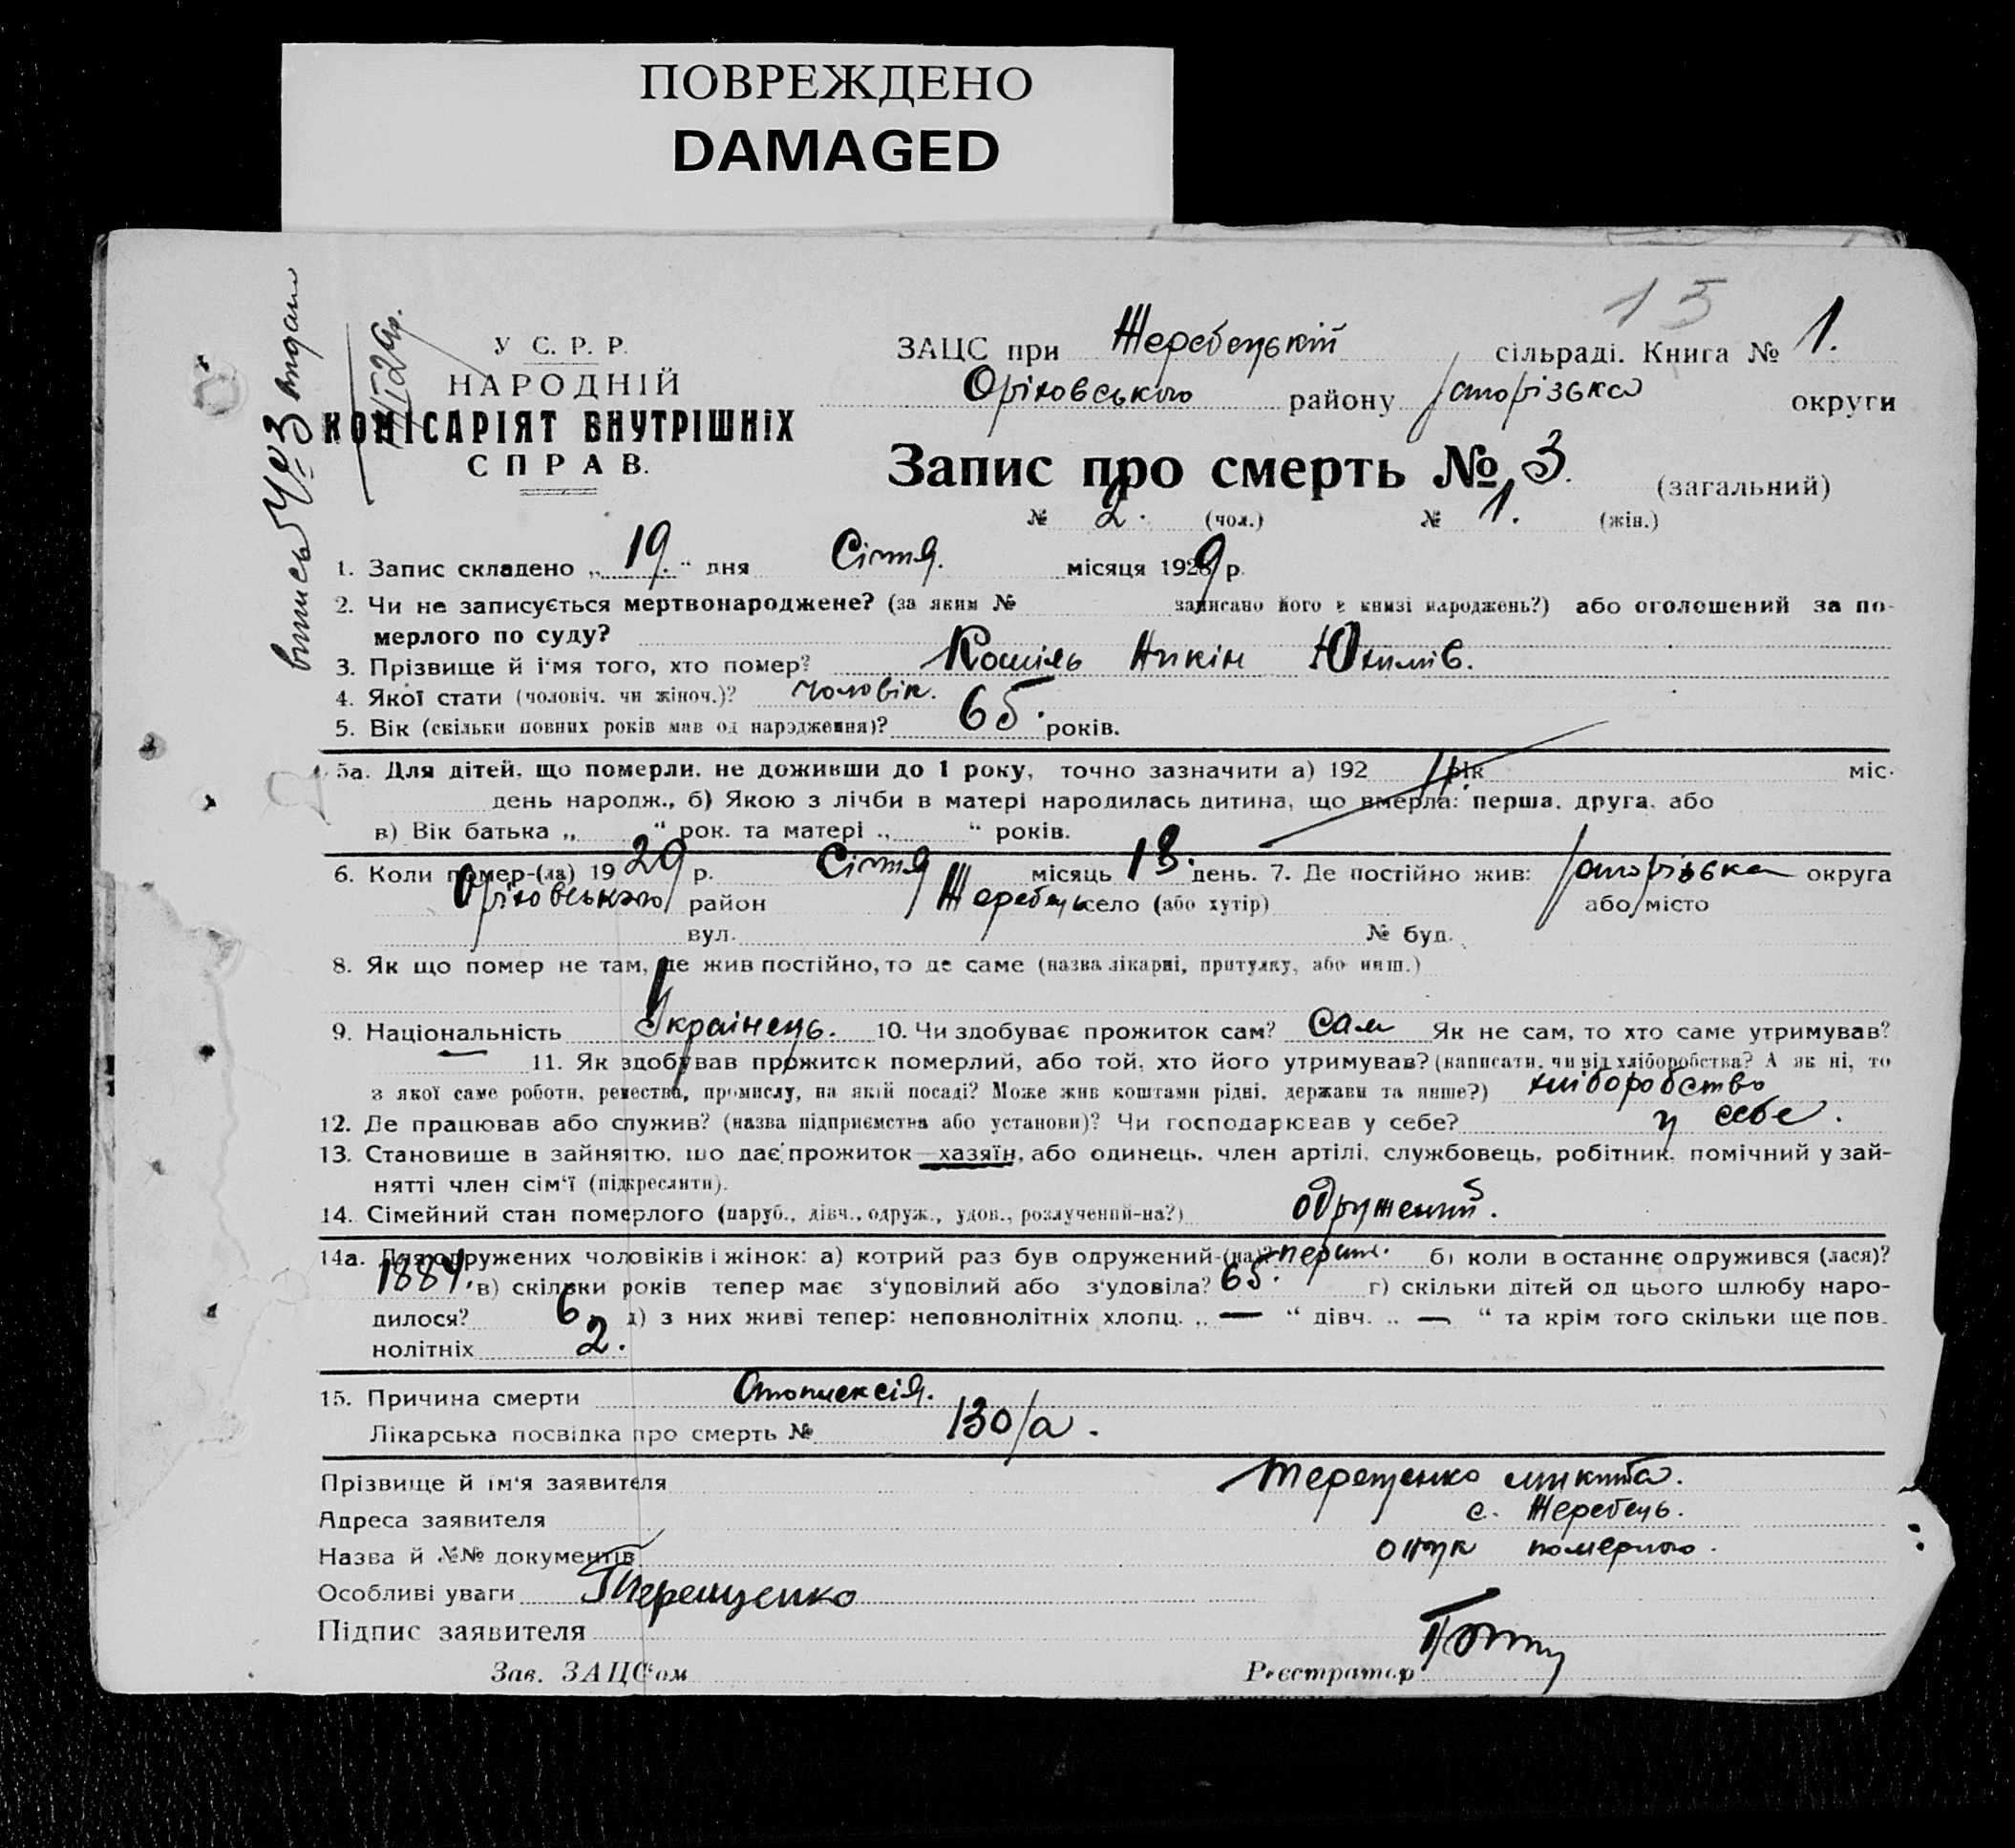 ПОВРЕЖДЕНО
DAMAGED
15
випись № 3 видан
У С. Р. Р.
НАРОДНІЙ
КОМІСАРІЯТ ВНУТРІШНІХ
СПРАВ.
ЗАЦС при Жеребецькій сільраді. Книга № 1.
Оріховського району Запорізька округи
Запис про смерть № 3. (загальний)
№ 2. (чол.) № 1. (жін.)
1. Запис складено „19.“ дня Січня. місяця 1929 р.
2. Чи не записується мертвонароджене? (за яким № записано його в книзі народжень?) або оголошений за по-
мерлого по суду?
3. Прізвище й ім'я того, хто помер? Кошіль Юхимів.
4. Якої стати (чоловіч. чи жіноч.)? чоловік.
5. Вік (скільки повних років мав од народження)? 65. років.
5а. Для дітей, що померли, не доживши до 1 року, точно зазначити а) 192 рік міс.
день народж., б) Якою з лічби в матері народилась дитина, що вмерла: перша, друга, або
в) Вік батька „ “ рок. та матері „ “ років.
6. Коли помер-(ла) 1929 р. Січня місяць 18. день. 7. Де постійно жив: Запорізька округа
Оріховського район Жеребець село (або хутір) або місто
вул. № буд.
8. Як що помер не там, де жив постійно, то де саме (назва лікарні, притулку, або инш.)
9. Національність Українець. 10. Чи здобуває прожиток сам? Сам Як не сам, то хто саме утримував?
11. Як здобував прожиток померлий, або той, хто його утримував? (написати, чи від хліборобства? А як ні, то
з якої саме роботи, ремества, промислу, на якій посаді? Може жив коштами рідні, держави та инше?) хліборобство
12. Де працював або служив? (назва підприємства або установи)? Чи господарював у себе? у себе.
13. Становище в зайняттю, що дає прожиток—хазяїн, або одинець, член артілі, службовець, робітник, помічний у зай-
нятті член сім‘ї (підкреслити).
14. Сімейний стан померлого (паруб., дівч., одруж., удов., розлучений-на?) одружений.
14а. Для одружених чоловіків і жінок: а) котрий раз був одружений-(на)? перши. б) коли востаннє одружився (лася)?
1884. в) скільки років тепер має з‘удовілий або з‘удовіла? 65. г) скільки дітей од цього шлюбу наро-
дилося? 6 д) з них живі тепер: неповнолітніх хлопц. „ — “ дівч. „ — “ та крім того скільки ще пов-
нолітніх 2.
15. Причина смерти Опоплексія.
Лікарська посвідка про смерть № 130/а.
Прізвище й ім‘я заявителя Терещенко Микита.
Адреса заявителя с. Жеребець.
Назва й №№ документів онук померлого.
Особливі уваги Терещенко
Підпис заявителя
Зав. ЗАЦС‘ом Реєстратор